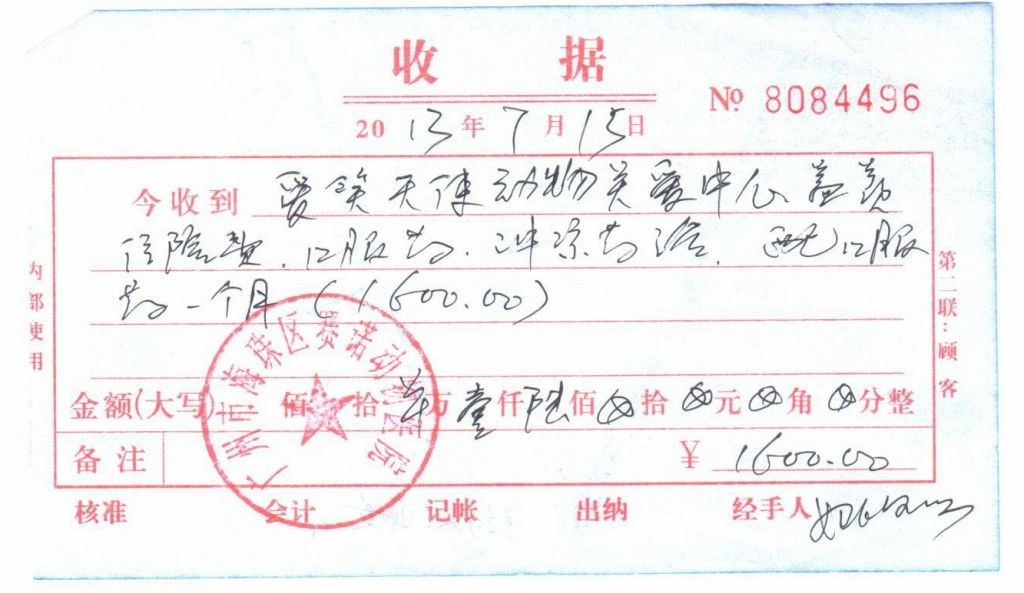 收 据
№ 8084496
2013年7月15日
今收到 爱笑天使动物关爱中心
住险费、口服药、 口服
药一个月(1600.00)
金额(大写) 佰 拾 万壹仟陆佰⊗拾⊗元⊗角⊗分整
备注 ¥ 1600.00
核准 会计 记帐 出纳 经手人
内部使用
第二联：顾客
广州市海珠区赛诺动物医院